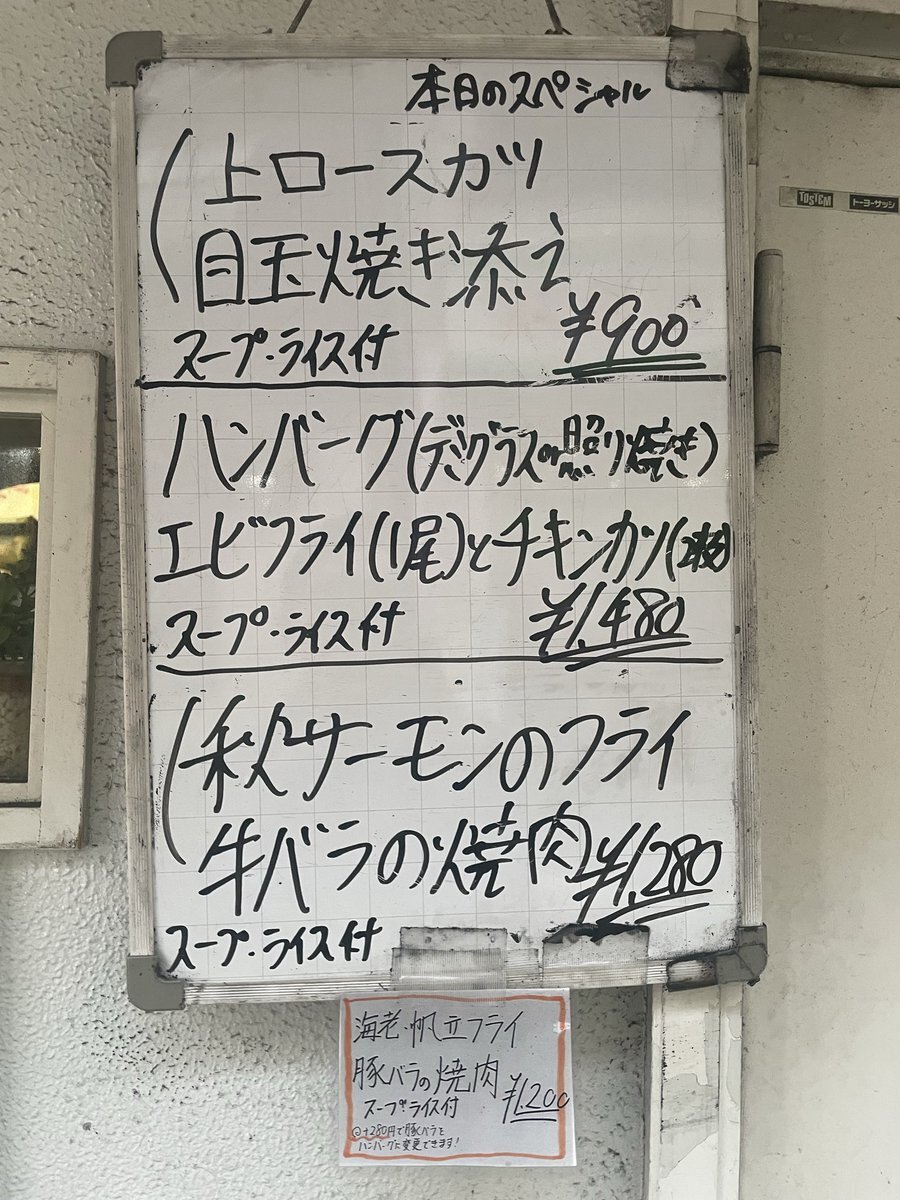 本日のスペシャル
上ロースカツ
目玉焼き添え
スープ・ライス付 ¥900
ハンバーグ(デミグラスor照り焼き)
エビフライ(1尾)とチキンカツ(2枚)
スープ・ライス付 ¥1,480
秋サーモンのフライ
牛バラの焼肉 ¥1,280
スープ・ライス付
海老・帆立フライ
豚バラの焼肉
スープ・ライス付 ¥1,200
◎+280円で豚バラを
ハンバーグに変更できます!
TOSTEM トーヨーサッシ